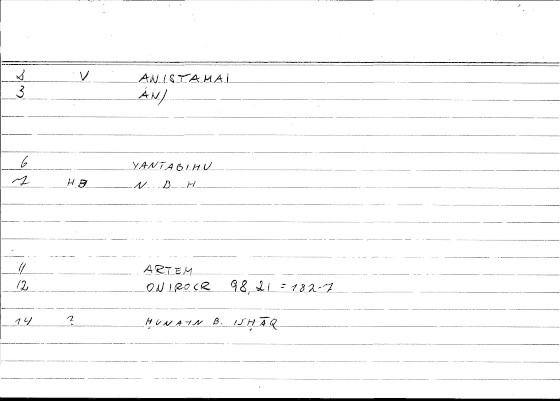 2 V ANISTAHAI
3 ĀN/
6 YANTABIHU
7 HB N B H
11 ARTEM
12 ONIROCR 98,21 = 182-7
14 ? ḤUNAYN B. ISḤĀQ